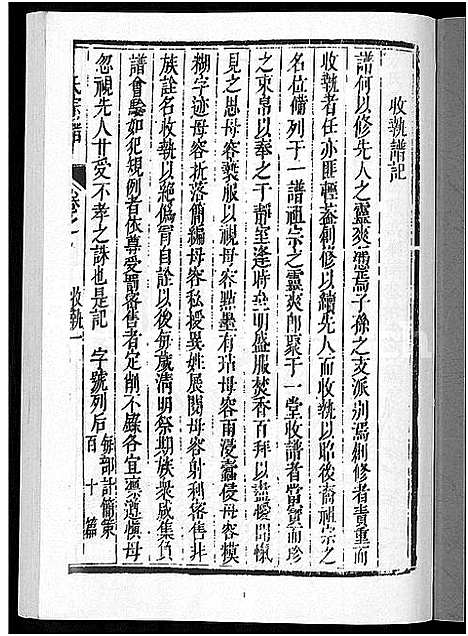 收執譜記
譜何以修先人之靈爽憑焉子孫之支派別焉創修者責重而
收執者任亦匪輕蓋創修以續先人而收執以昭後裔祖宗之
名位備列于一譜祖宗之靈爽即聚于一堂收譜者當寶而珍
之束帛以奉之于靜室逢時至明盛服焚香百拜以盡優聞愾
見之思毋容褻服以視毋容點墨有玷毋容雨浸蠹侵毋容模
糊字迹毋容拆落簡編毋容私授異姓展閱毋容射利窬售非
族詮名收執以絕偽冐自詮以後每歲清明祭期族衆咸集負
譜會驗如犯規例者依尊受罰窬售者定削不錄各宜凜遵慎毋
忽視先人甘受不孝之誅也是記 字號列后 每部計簡策 百十篇
氏宗譜 卷之 收執 一
1